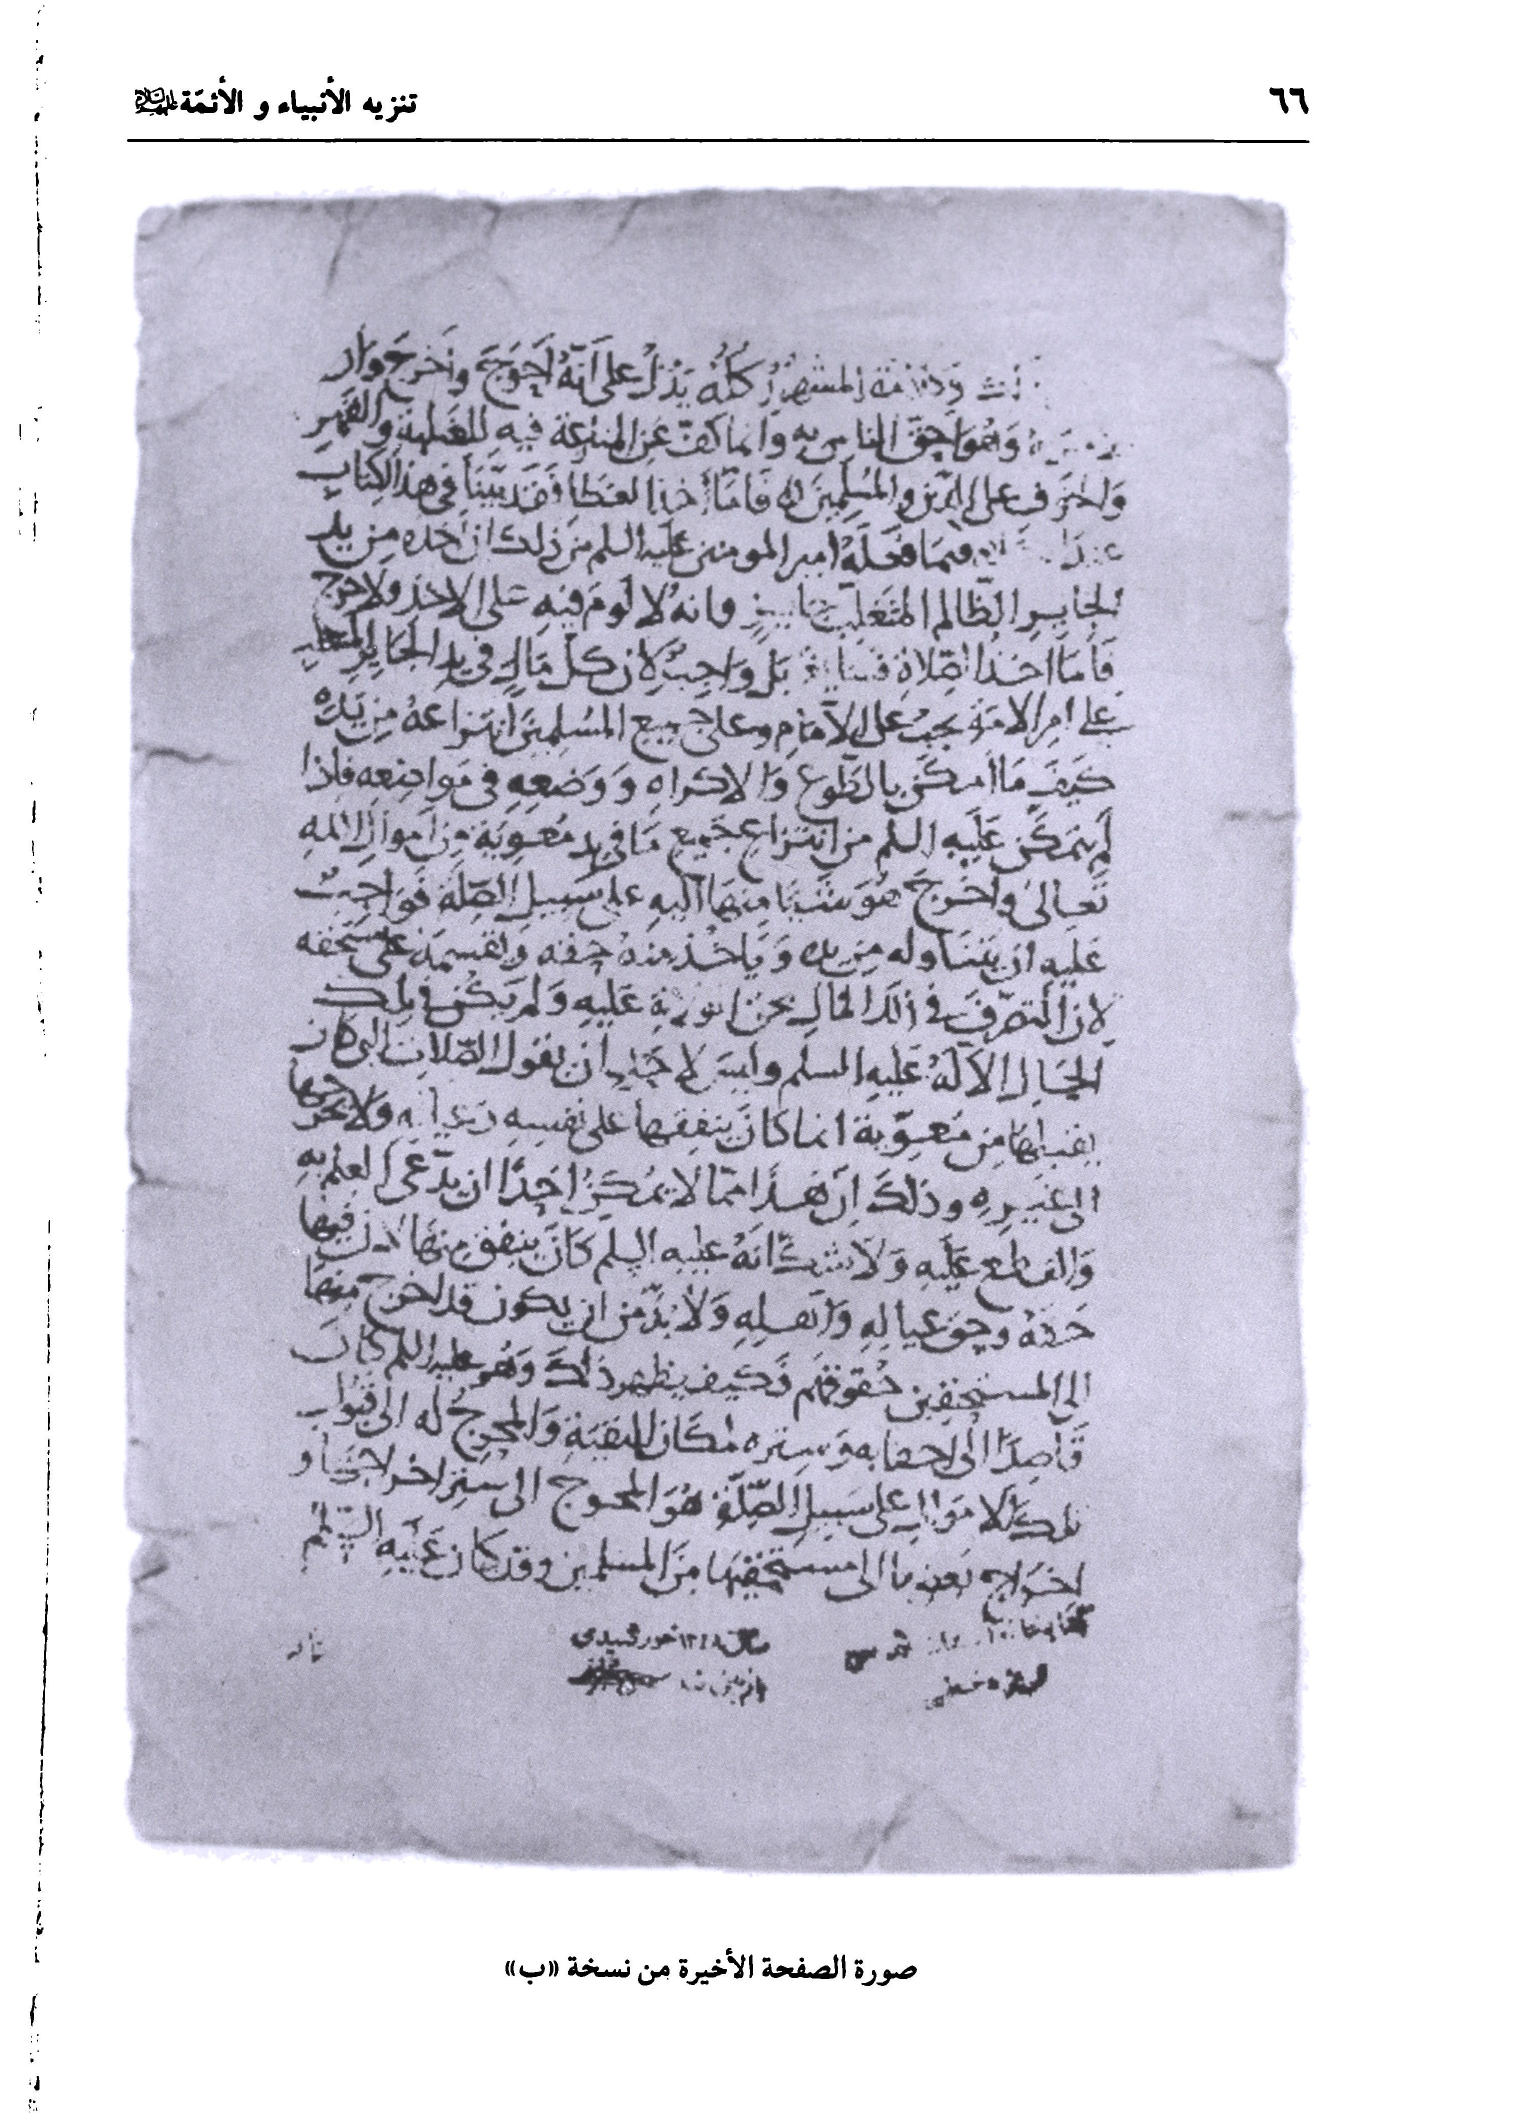 ٦٦
تنزيه الأنبياء و الأئمّة عليهم السلام
كله يدل على أنه أحوج وأخرج وان
وهو أحق الناس به وانما كف عن المنازعة فيه للغلبة والقهر
والخوف على الدين والمسلمين فاما أخذ العطا فقد بينا في هذا الكتاب
فيما فعله امير المومنين عليه السلم من ذلك ان أخذه من يد
الجاير الظالم المتغلب جايز وانه لا لوم فيه على الاخذ ولا حرج
فاما اخذ الصلاة فسايغ بل واجب لان كل مال في يد الجاير المتغلب
على امر الامة يجب على الامام وعلى جميع المسلمين انتزاعه من يده
كيف ما أمكن بالطوع والاكراه ووضعه في مواضعه فاذا
لم يتمكن عليه السلم من انتزاع جميع ما في يد معوية من اموال الله
تعالى واخرج هو شيا منها اليه على سبيل الصلة فواجب
عليه ان يتناوله من يده وياخذ منه حقه ويقسمه على مستحقه
لان التصرف في ذلك المال بحق الولاية عليه ولم يكن في تلك
الحال الا له عليه السلم وليس لاحد ان يقول الصلات التي كان
يقبلها من معوية انما كان ينفقها على نفسه وعياله ولا يخرجها
الى غيره وذلك ان هذا مما لا يمكن احدا ان يدعى العلم به
والقطع عليه ولا شك انه عليه السلم كان ينفق منها لان فيها
حقه وحق عياله واهله ولا بد من ان يكون قد اخرج منها
الى المستحقين حقوقهم وكيف يظهر ذلك وهو عليه السلم كان
قاصدا الى اخفايه وستره لمكان التقية والمحوج له الى قبول
تلك الاموال على سبيل الصلة هو المحوج الى ستر اخراجها او
اخراج بعضها الى مستحقيها من المسلمين وقد كان عليه السلم
سال ١٣٤٨ خورشيدى
صورة الصفحة الأخيرة من نسخة «ب»